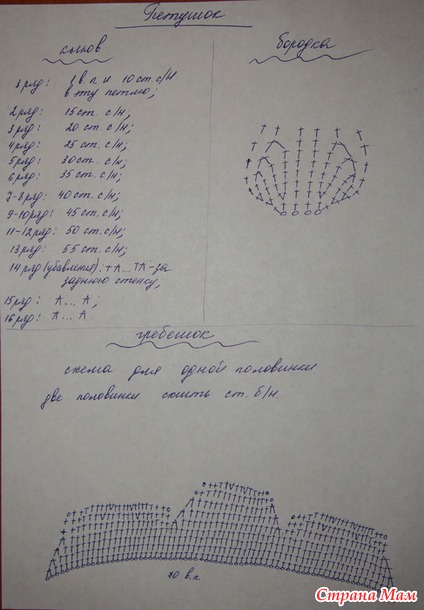 Петушок
клюв
1 ряд: 1 в.п и 10 ст. с/н
в эту петлю;
2 ряд: 15 ст. с/н;
3 ряд: 20 ст. с/н;
4 ряд: 25 ст. с/н;
5 ряд: 30 ст. с/н;
6 ряд: 35 ст. с/н;
7-8 ряд: 40 ст. с/н;
9-10 ряд: 45 ст. с/н;
11-12 ряд: 50 ст. с/н;
13 ряд: 55 ст. с/н;
14 ряд (убавления): за
заднюю стенку;
15 ряд:
16 ряд:
бородка
гребешок
схема для одной половинки
две половинки сшить ст. б/н.
70 в.п
Страна Мам